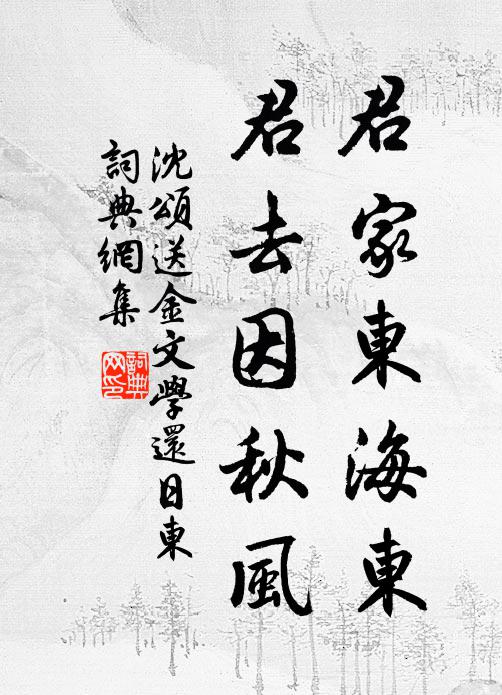 君家東海東
君去因秋風
沈頌送金文學還日東
詞典網集
詞典网印